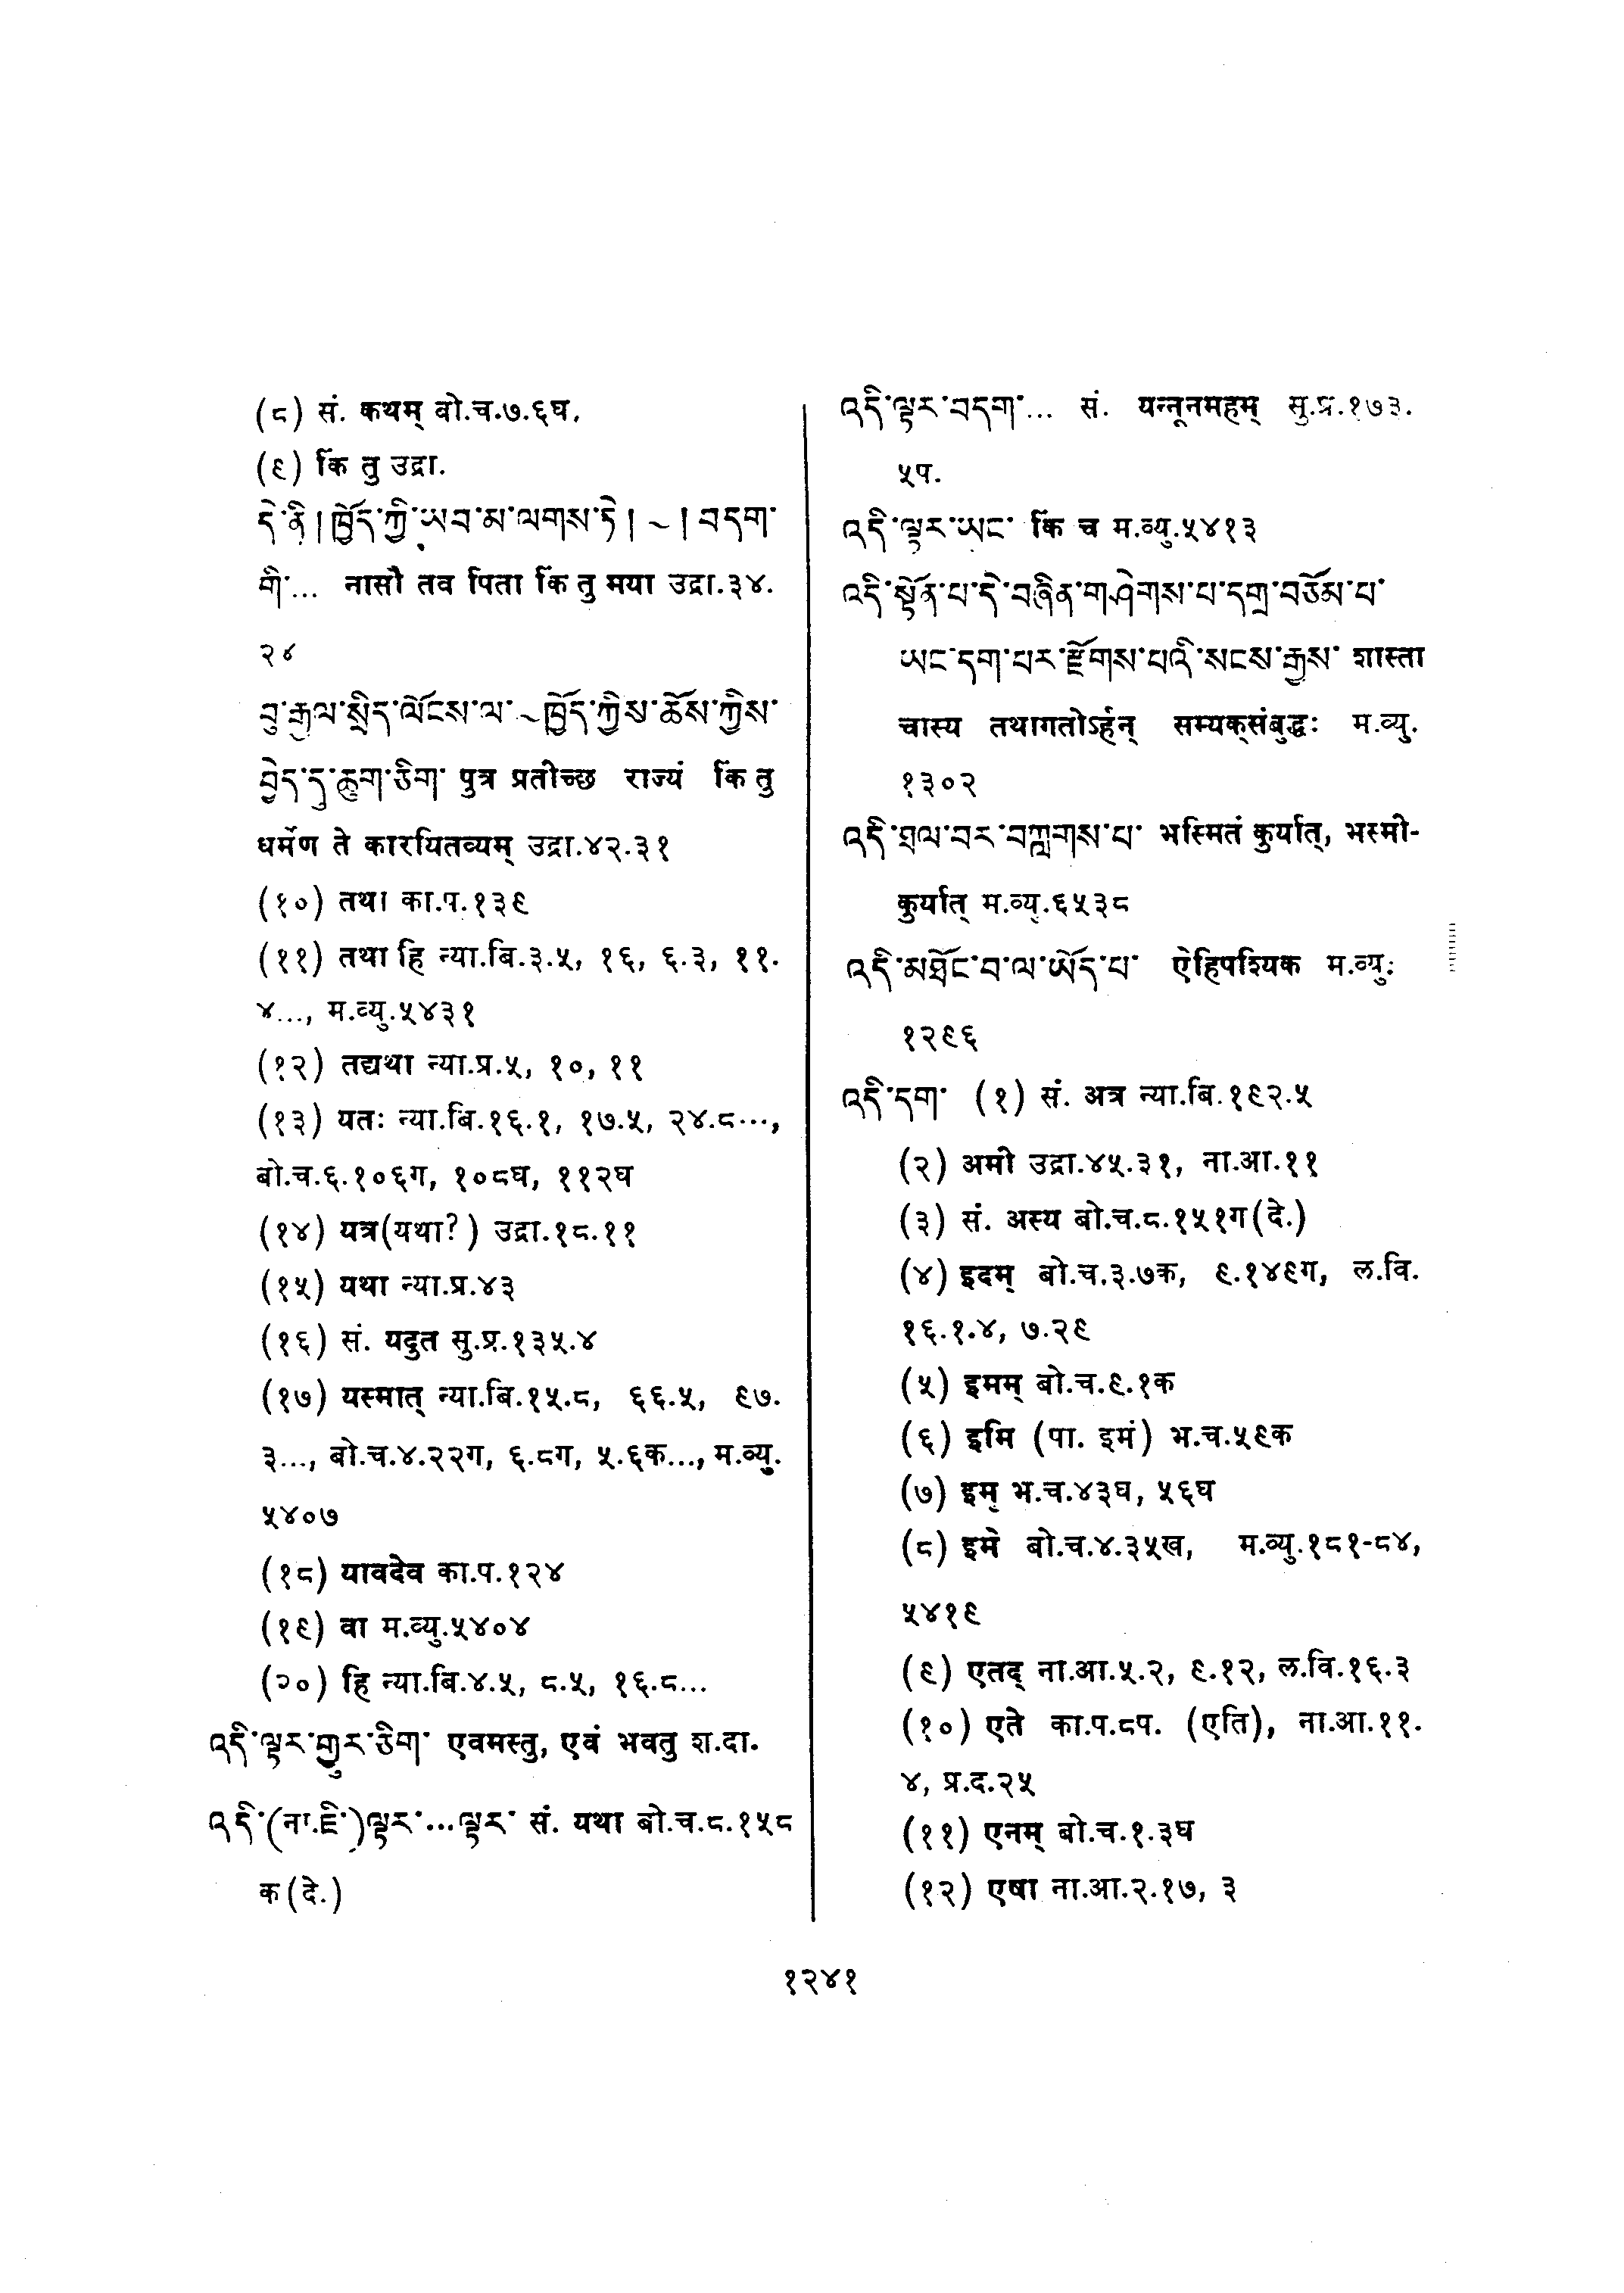 (८) सं. कथम् बो.च.७.६घ.
(९) किं तु उद्रा.
དེ་ནི། ཁྱོད་ཀྱི་ཡབ་མ་ལགས་ཏེ། ~ །བདག་
གི་... नासौ तव पिता किं तु मया उद्रा.३४.
२४
བུ་རྒྱལ་སྲིད་ལོངས་ལ་~ཁྱོད་ཀྱིས་ཆོས་ཀྱིས་
བྱེད་དུ་ཆུག་ཅིག་ पुत्र प्रतीच्छ राज्यं किं तु
धर्मेण ते कारयितव्यम् उद्रा.४२.३१
(१०) तथा का.प.१३९
(११) तथा हि न्या.बि.३.५, १६, ६.३, ११.
४..., म.व्यु.५४३१
(१२) तद्यथा न्या.प्र.५, १०, ११
(१३) यतः न्या.बि.१६.१, १७.५, २४.८...,
बो.च.६.१०६ग, १०८घ, ११२घ
(१४) यत्र(यथा?) उद्रा.१८.११
(१५) यथा न्या.प्र.४३
(१६) सं. यदुत सु.प्र.१३५.४
(१७) यस्मात् न्या.बि.१५.८, ६६.५, ९७.
३..., बो.च.४.२२ग, ६.८ग, ५.६क..., म.व्यु.
५४०७
(१८) यावदेव का.प.१२४
(१९) वा म.व्यु.५४०४
(२०) हि न्या.बि.४.५, ८.५, १६.८...
འདི་ལྟར་གྱུར་ཅིག་ एवमस्तु, एवं भवतु श.दा.
འདི་(ན་.ཇི་)ལྟར་...ལྟར་ सं. यथा बो.च.८.१५८
क(दे.)
འདི་ལྟར་བདག་... सं. यन्नूनमहम् सु.प्र.१७३.
५प.
འདི་ལྟར་ཡང་ किं च म.व्यु.५४१३
འདི་སྟོན་པ་དེ་བཞིན་གཤེགས་པ་དགྲ་བཅོམ་པ་
ཡང་དག་པར་རྫོགས་པའི་སངས་རྒྱས་ शास्ता
चास्य तथागतोऽर्हन् सम्यक्संबुद्धः म.व्यु.
१३०२
འདི་ཐལ་བར་བཀླགས་པ་ भस्मितं कुर्यात्, भस्मी-
कुर्यात् म.व्यु.६५३८
འདི་མཐོང་བ་ལ་ཡོད་པ་ ऐहिपश्यिक म.व्यु.
१२९६
འདི་དག་ (१) सं. अत्र न्या.बि.१९२.५
(२) अमी उद्रा.४५.३१, ना.आ.११
(३) सं. अस्य बो.च.८.१५१ग(दे.)
(४) इदम् बो.च.३.७क, ९.१४९ग, ल.वि.
१६.१.४, ७.२९
(५) इमम् बो.च.९.१क
(६) इमि (पा. इमं) भ.च.५९क
(७) इमु भ.च.४३घ, ५६घ
(८) इमे बो.च.४.३५ख, म.व्यु.१८१-८४,
५४१९
(९) एतद् ना.आ.५.२, ९.१२, ल.वि.१६.३
(१०) एते का.प.८प. (एति), ना.आ.११.
४, प्र.द.२५
(११) एनम् बो.च.१.३घ
(१२) एषा ना.आ.२.१७, ३
१२४१